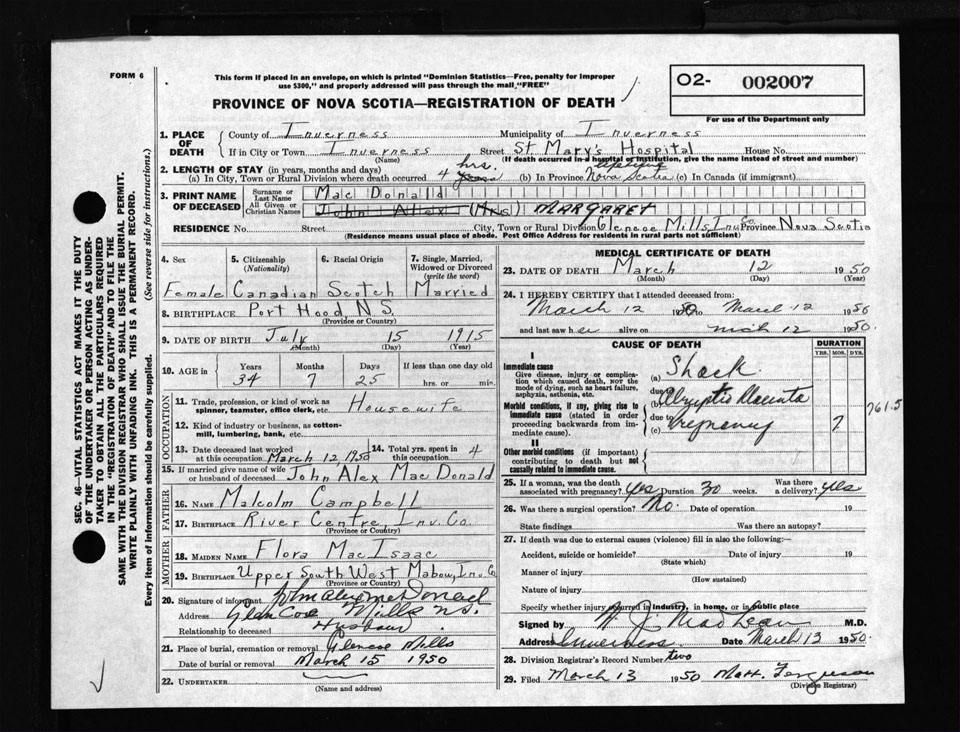 FORM 6
This form if placed in an envelope, on which is printed "Dominion Statistics—Free, penalty for improper
use $300," and properly addressed will pass through the mail "FREE"
O2- 002007
PROVINCE OF NOVA SCOTIA—REGISTRATION OF DEATH
For use of the Department only
1. PLACE OF DEATH County of Inverness Municipality of Inverness
If in City or Town Inverness Street St Mary's Hospital House No.
(Name) (If death occurred in a hospital or institution, give the name instead of street and number)
2. LENGTH OF STAY (in years, months and days) hrs. lifetime
(a) In City, Town or Rural Division where death occurred 4 years (b) In Province Nova Scotia (c) In Canada (if immigrant)
3. PRINT NAME OF DECEASED Surname or Last Name Mac Donalld
All Given or Christian Names John Alex (Mrs) MARGARET
RESIDENCE No. Street City, Town or Rural Division Glencoe Mills Inv Co. Province Nova Scotia
(Residence means usual place of abode. Post Office Address for residents in rural parts not sufficient)
4. Sex 5. Citizenship (Nationality) 6. Racial Origin 7. Single, Married, Widowed or Divorced (write the word)
Female Canadian Scotch Married
8. BIRTHPLACE Port Hood, N.S.
(Province or Country)
9. DATE OF BIRTH July 15 1915
(Month) (Day) (Year)
10. AGE in Years Months Days If less than one day old
34 7 25 hrs. or min.
OCCUPATION
11. Trade, profession, or kind of work as spinner, teamster, office clerk, etc. Housewife
12. Kind of industry or business, as cotton-mill, lumbering, bank, etc.
13. Date deceased last worked at this occupation March 12 1950 14. Total yrs. spent in this occupation 4
15. If married give name of wife or husband of deceased John Alex MacDonald
FATHER
16. NAME Malcolm Campbell
17. BIRTHPLACE River Centre, Inv. Co.
(Province or Country)
MOTHER
18. MAIDEN NAME Flora MacIsaac
19. BIRTHPLACE Upper South West Mabou, Inv. Co
(Province or Country)
20. Signature of informant John Alex McDonald
Address Glen Coe Mills N.S.
Relationship to deceased Husband
21. Place of burial, cremation or removal Glencoe Mills
Date of burial or removal March 15 1950
22. UNDERTAKER
(Name and address)
MEDICAL CERTIFICATE OF DEATH
23. DATE OF DEATH March 12 1950
(Month) (Day) (Year)
24. I HEREBY CERTIFY that I attended deceased from:
March 12 1950 to March 12 1950
and last saw her alive on mch 12 1950.
CAUSE OF DEATH DURATION
YRS. MOS. DYS.
I
Immediate cause
Give disease, injury or complication which caused death, NOT the mode of dying, such as heart failure, asphyxia, asthenia, etc.
(a) Shock
due to
Morbid conditions, if any, giving rise to immediate cause (stated in order proceeding backwards from immediate cause).
(b) Abruptio Placenta
due to
(c) Pregnancy 7
761.5
II
Other morbid conditions (if important) contributing to death but not causally related to immediate cause.
25. If a woman, was the death associated with pregnancy? Yes Duration 30 weeks. Was there a delivery? yes
26. Was there a surgical operation? No. Date of operation 19
State findings Was there an autopsy?
27. If death was due to external causes (violence) fill in also the following:—
Accident, suicide or homicide? Date of injury 19
(State which)
Manner of injury
(How sustained)
Nature of injury
Specify whether injury occurred in industry, in home, or in public place
Signed by N. J. MacLean M.D.
Address Inverness Date March 13 1950.
28. Division Registrar's Record Number two
29. Filed March 13 1950 Matt. Ferguson
(Division Registrar)
SEC. 46—VITAL STATISTICS ACT MAKES IT THE DUTY
OF THE UNDERTAKER OR PERSON ACTING AS UNDER-
TAKER TO OBTAIN ALL THE PARTICULARS REQUIRED
IN THE "REGISTRATION OF DEATH" AND TO FILE THE
SAME WITH THE DIVISION REGISTRAR WHO SHALL ISSUE THE BURIAL PERMIT.
WRITE PLAINLY WITH UNFADING INK. THIS IS A PERMANENT RECORD.
Every item of information should be carefully supplied. (See reverse side for instructions.)